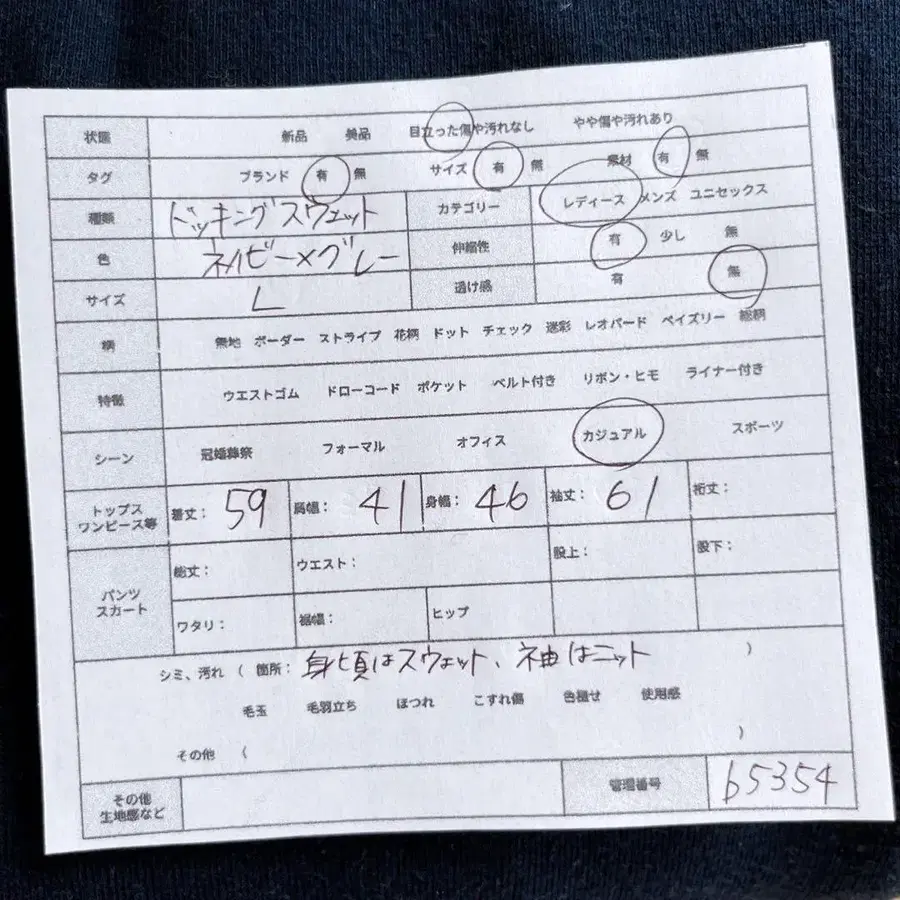 状態 新品 美品 目立った傷や汚れなし やや傷や汚れあり
タグ ブランド 有 無 サイズ 有 無 素材 有 無
種類 ドッキングスウェット カテゴリー レディース メンズ ユニセックス
色 ネイビー×グレー 伸縮性 有 少し 無
サイズ L 透け感 有 無
柄 無地 ボーダー ストライプ 花柄 ドット チェック 迷彩 レオパード ペイズリー 総柄
特徴 ウエストゴム ドローコード ポケット ベルト付き リボン・ヒモ ライナー付き
シーン 冠婚葬祭 フォーマル オフィス カジュアル スポーツ
トップス
ワンピース等 着丈: 59 肩幅: 41 身幅: 46 袖丈: 61 裄丈:
パンツ
スカート 総丈: ウエスト: 股上: 股下:
ワタリ: 裾幅: ヒップ
シミ、汚れ ( 箇所: 身頃はスウェット、袖はニット )
毛玉 毛羽立ち ほつれ こすれ傷 色褪せ 使用感
その他 ( )
その他
生地感など 管理番号 b5354